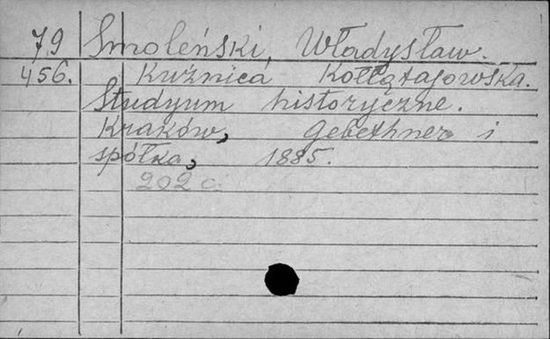 79 Smoleński, Władysław.
456. Kuźnica Kołłątajowska.
Studyum historyczne.
Kraków, Gebethner i
spółka, 1885.
202 c.